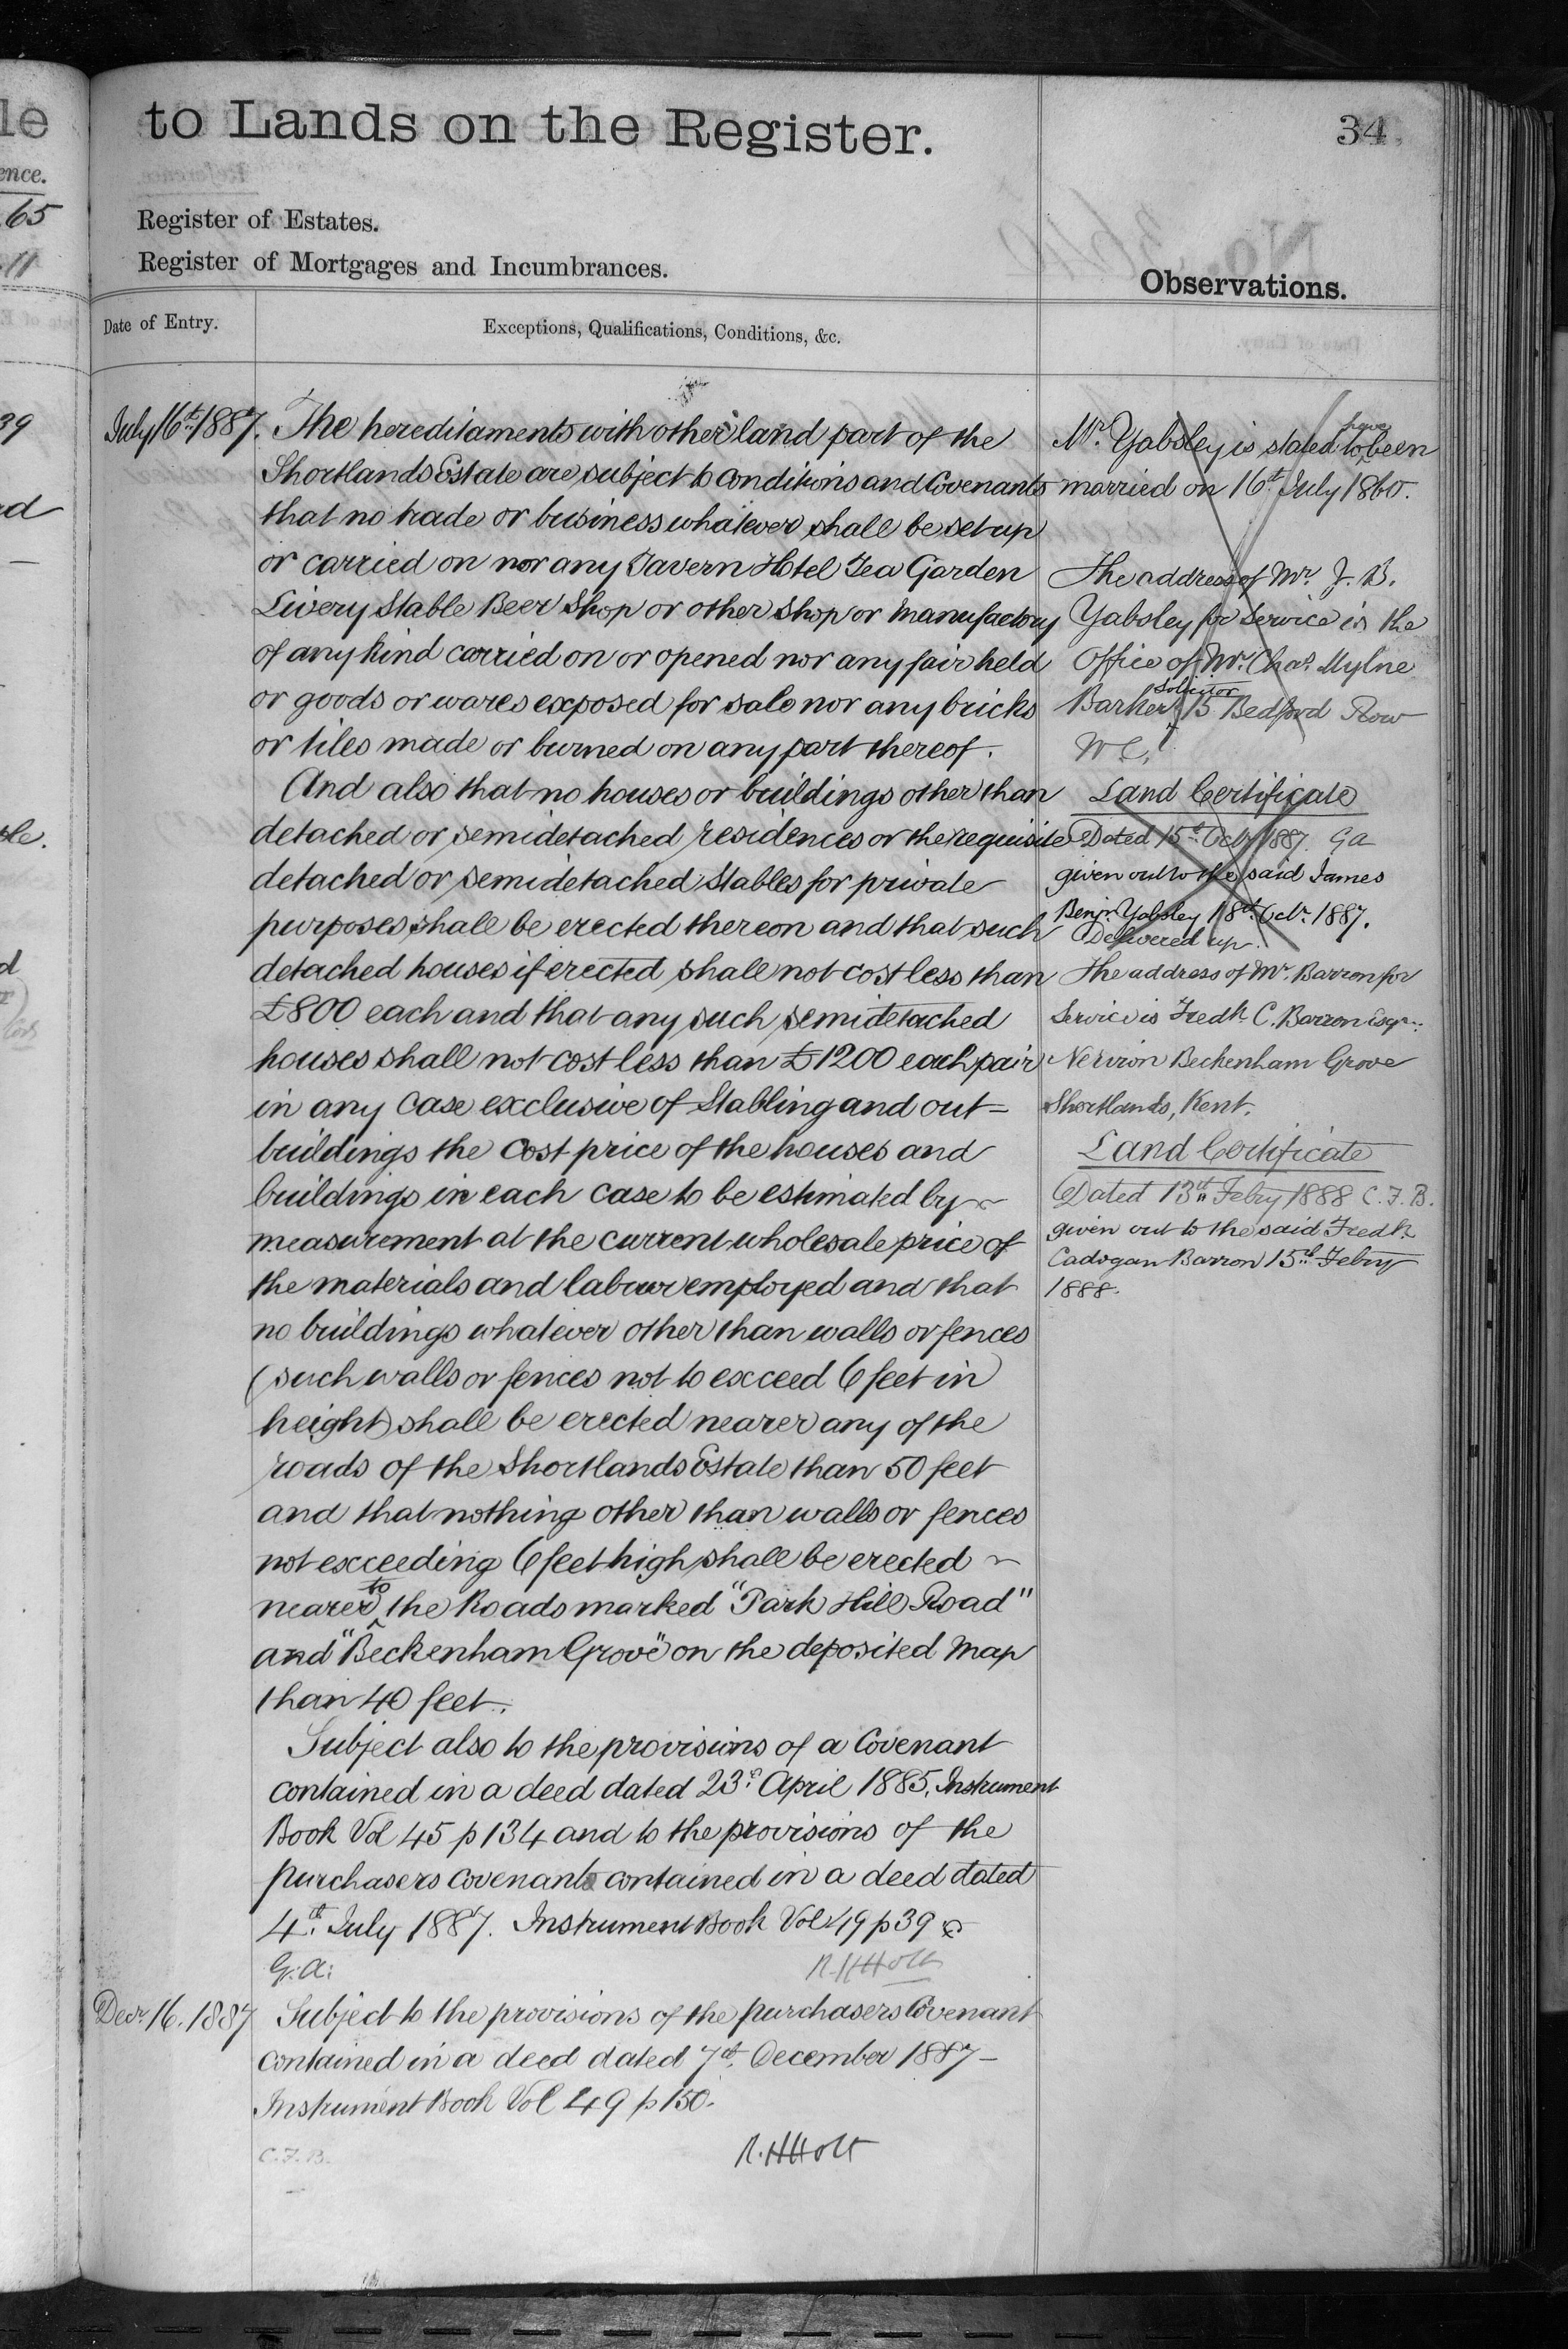 le
ence.
65
11
39
d
to Lands on the Register.
34
Register of Estates.
Register of Mortgages and Incumbrances.
Observations.
Date of Entry.
Exceptions, Qualifications, Conditions, &c.
July 16th 1887. The hereditaments with other land part of the
Shortlands Estate are subject to conditions and Covenants
that no trade or business whatever shall be set up
or carried on nor any Tavern Hotel Tea Garden
Livery Stable Beer Shop or other Shop or Manufactory
of any kind carried on or opened nor any fair held
or goods or wares exposed for sale nor any bricks
or tiles made or burned on any part thereof.
And also that no houses or buildings other than
detached or semidetached residences or the requisite
detached or semidetached Stables for private
purposes shall be erected thereon and that such
detached houses if erected shall not cost less than
£800 each and that any such semidetached
houses shall not cost less than £1200 each pair
in any case exclusive of Stabling and out=
buildings the cost price of the houses and
buildings in each case to be estimated by ~
measurement at the current wholesale price of
the materials and labour employed and that
no buildings whatever other than walls or fences
(such walls or fences not to exceed 6 feet in
height) shall be erected nearer any of the
roads of the Shortlands Estate than 50 feet
and that nothing other than walls or fences
not exceeding 6 feet high shall be erected ~
nearer to the Roads marked "Park Hill Road"
and "Beckenham Grove" on the deposited Map
than 40 feet.
Subject also to the provisions of a Covenant
contained in a deed dated 23rd April 1885, Instrument
Book Vol 45 p 134 and to the provisions of the
purchasers covenants contained in a deed dated
4th July 1887. Instrument Book Vol 49 p 39
G.A. R.H Holt
Decr 16. 1887 Subject to the provisions of the purchasers Covenant
contained in a deed dated 7th December 1887 -
Instrument Book Vol 49 p 150.
C.F.B.
R.H Holt
Mr. Yabsley is stated to have been
married on 16th July 1860.
The address of Mr. J. B.
Yabsley for Service is the
Office of Mr. Chas. Mylne
Barker Solicitor 15 Bedford Row
W C.
Land Certificate
Dated 15th Octr 1887. GA
given out to the said James
Benjn. Yabsley 18th Octr. 1887.
Delivered up.
The address of Mr. Barron for
Service is Fredk. C. Barron Esqr.
Nervion Beckenham Grove
Shortlands, Kent.
Land Certificate
Dated 13th Febry 1888 C. F. B.
given out to the said Fredk.
Cadogan Barron 15th Febry
1888.